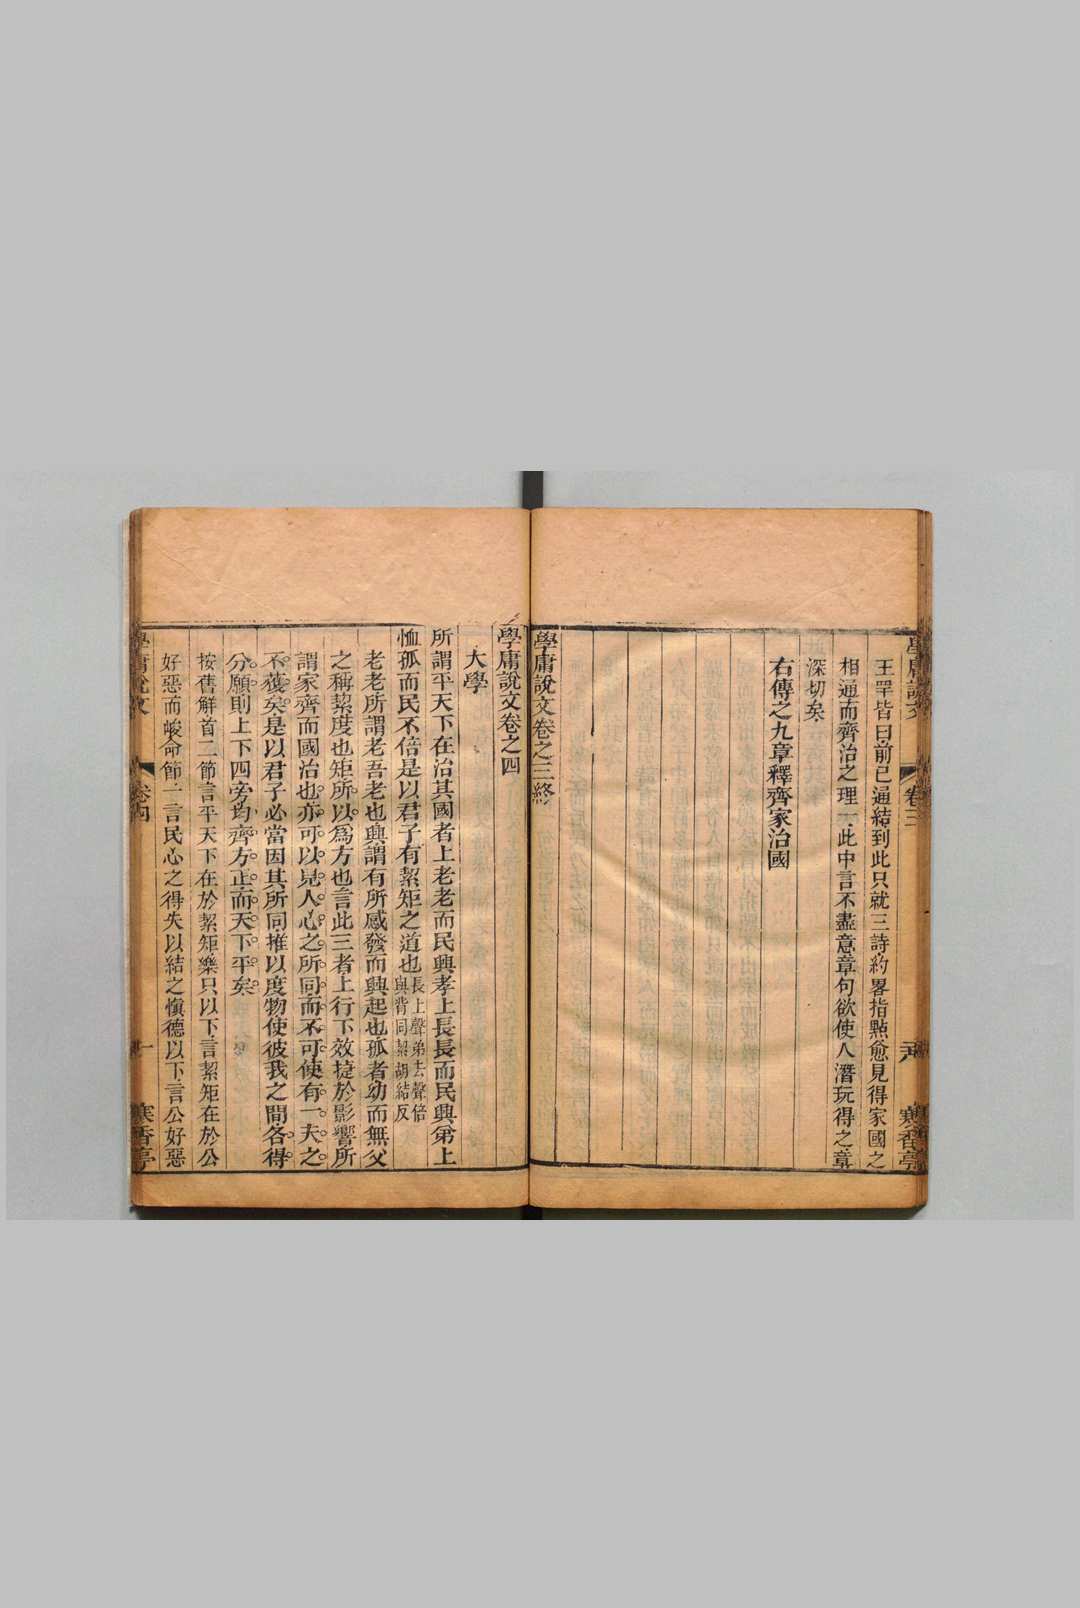 學庸說文
卷三
寒香亭
王罕皆曰前已通結到此只就三詩約畧指點愈見得家國之
相通而齊治之理一此中言不盡意章句欲使人潛玩得之章
深切矣
右傳之九章釋齊家治國
學庸說文卷之三終
學庸說文卷之四
大學
所謂平天下在治其國者上老老而民興孝上長長而民興弟上
恤孤而民不倍是以君子有絜矩之道也長上聲弟去聲倍
與背同絜胡結反
老老所謂老吾老也興謂有所感發而興起也孤者幼而無父
之稱絜度也矩所以爲方也言此三者上行下效捷於影響所
謂家齊而國治也亦可以見人心之所同而不可使有一夫之
不獲矣是以君子必當因其所同推以度物使彼我之間各得
分願則上下四旁均齊方正而天下平矣
按舊解首二節言平天下在於絜矩樂只以下言絜矩在於公
好惡而峻命節一言民心之得失以結之愼德以下言公好惡
學庸說文
卷四
一
寒香亭